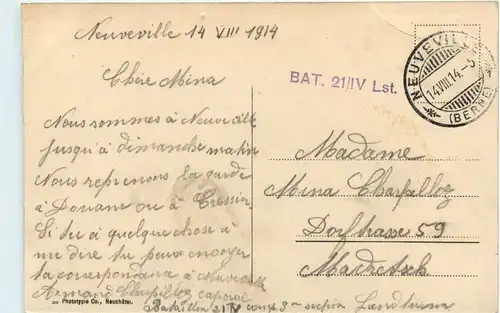 Neuveville 14 VIII 1914
Chère Mina
Nous sommes à Neuveville
jusqu'à dimanche matin
Nous reprenons la garde
à Douane ou à Cressier
Si tu à quelque chose à
me dire tu peux envoyer
ta correspondance à Neuveville
Armand Charpilloz caporal
Bataillon 21 IV comp 3me section Landsturm
BAT. 21/IV Lst.
NEUVEVILLE
14.VIII.14.-5
(BERNE)
Madame
Mina Charpilloz
Dorfstrasse 59
Madretsch
Phototypie Co., Neuchâtel.